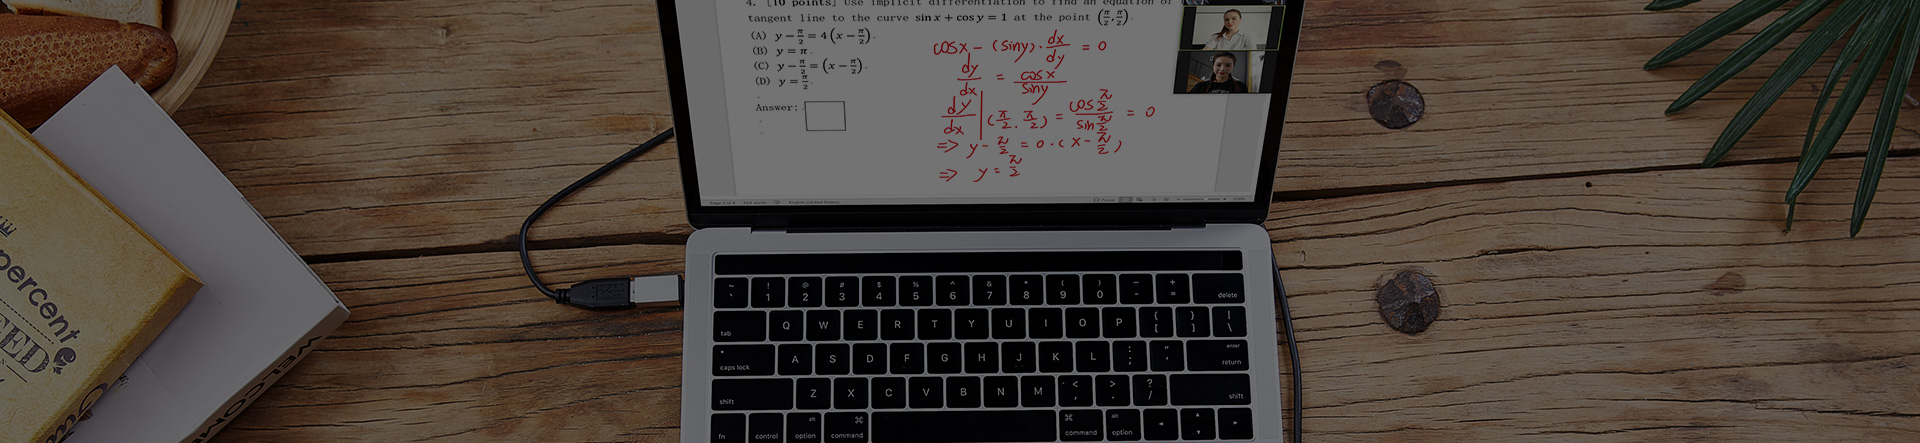 4. [10 points] Use implicit differentiation to find an equation of
tangent line to the curve sin x + cos y = 1 at the point (π/2, π/2).
(A) y − π/2 = 4(x − π/2).
(B) y = π.
(C) y − π/2 = (x − π/2).
(D) y = π/2.
Answer:
cosx − (siny) · dx/dy = 0
dy/dx = cosx/siny
dy/dx | (π/2, π/2) = cos π/2 / sin π/2 = 0
=> y − π/2 = 0 · (x − π/2)
=> y = π/2
percent
WELCOME
~ ` ! 1 @ 2 # 3 $ 4 % 5 ^ 6 & 7 * 8 ( 9 ) 0 — - + = delete
tab Q W E R T Y U I O P { [ } ] | \
caps lock A S D F G H J K L : ; " ' enter return
shift Z X C V B N M < , > . ? / shift
fn control alt option ⌘ command ⌘ command alt option